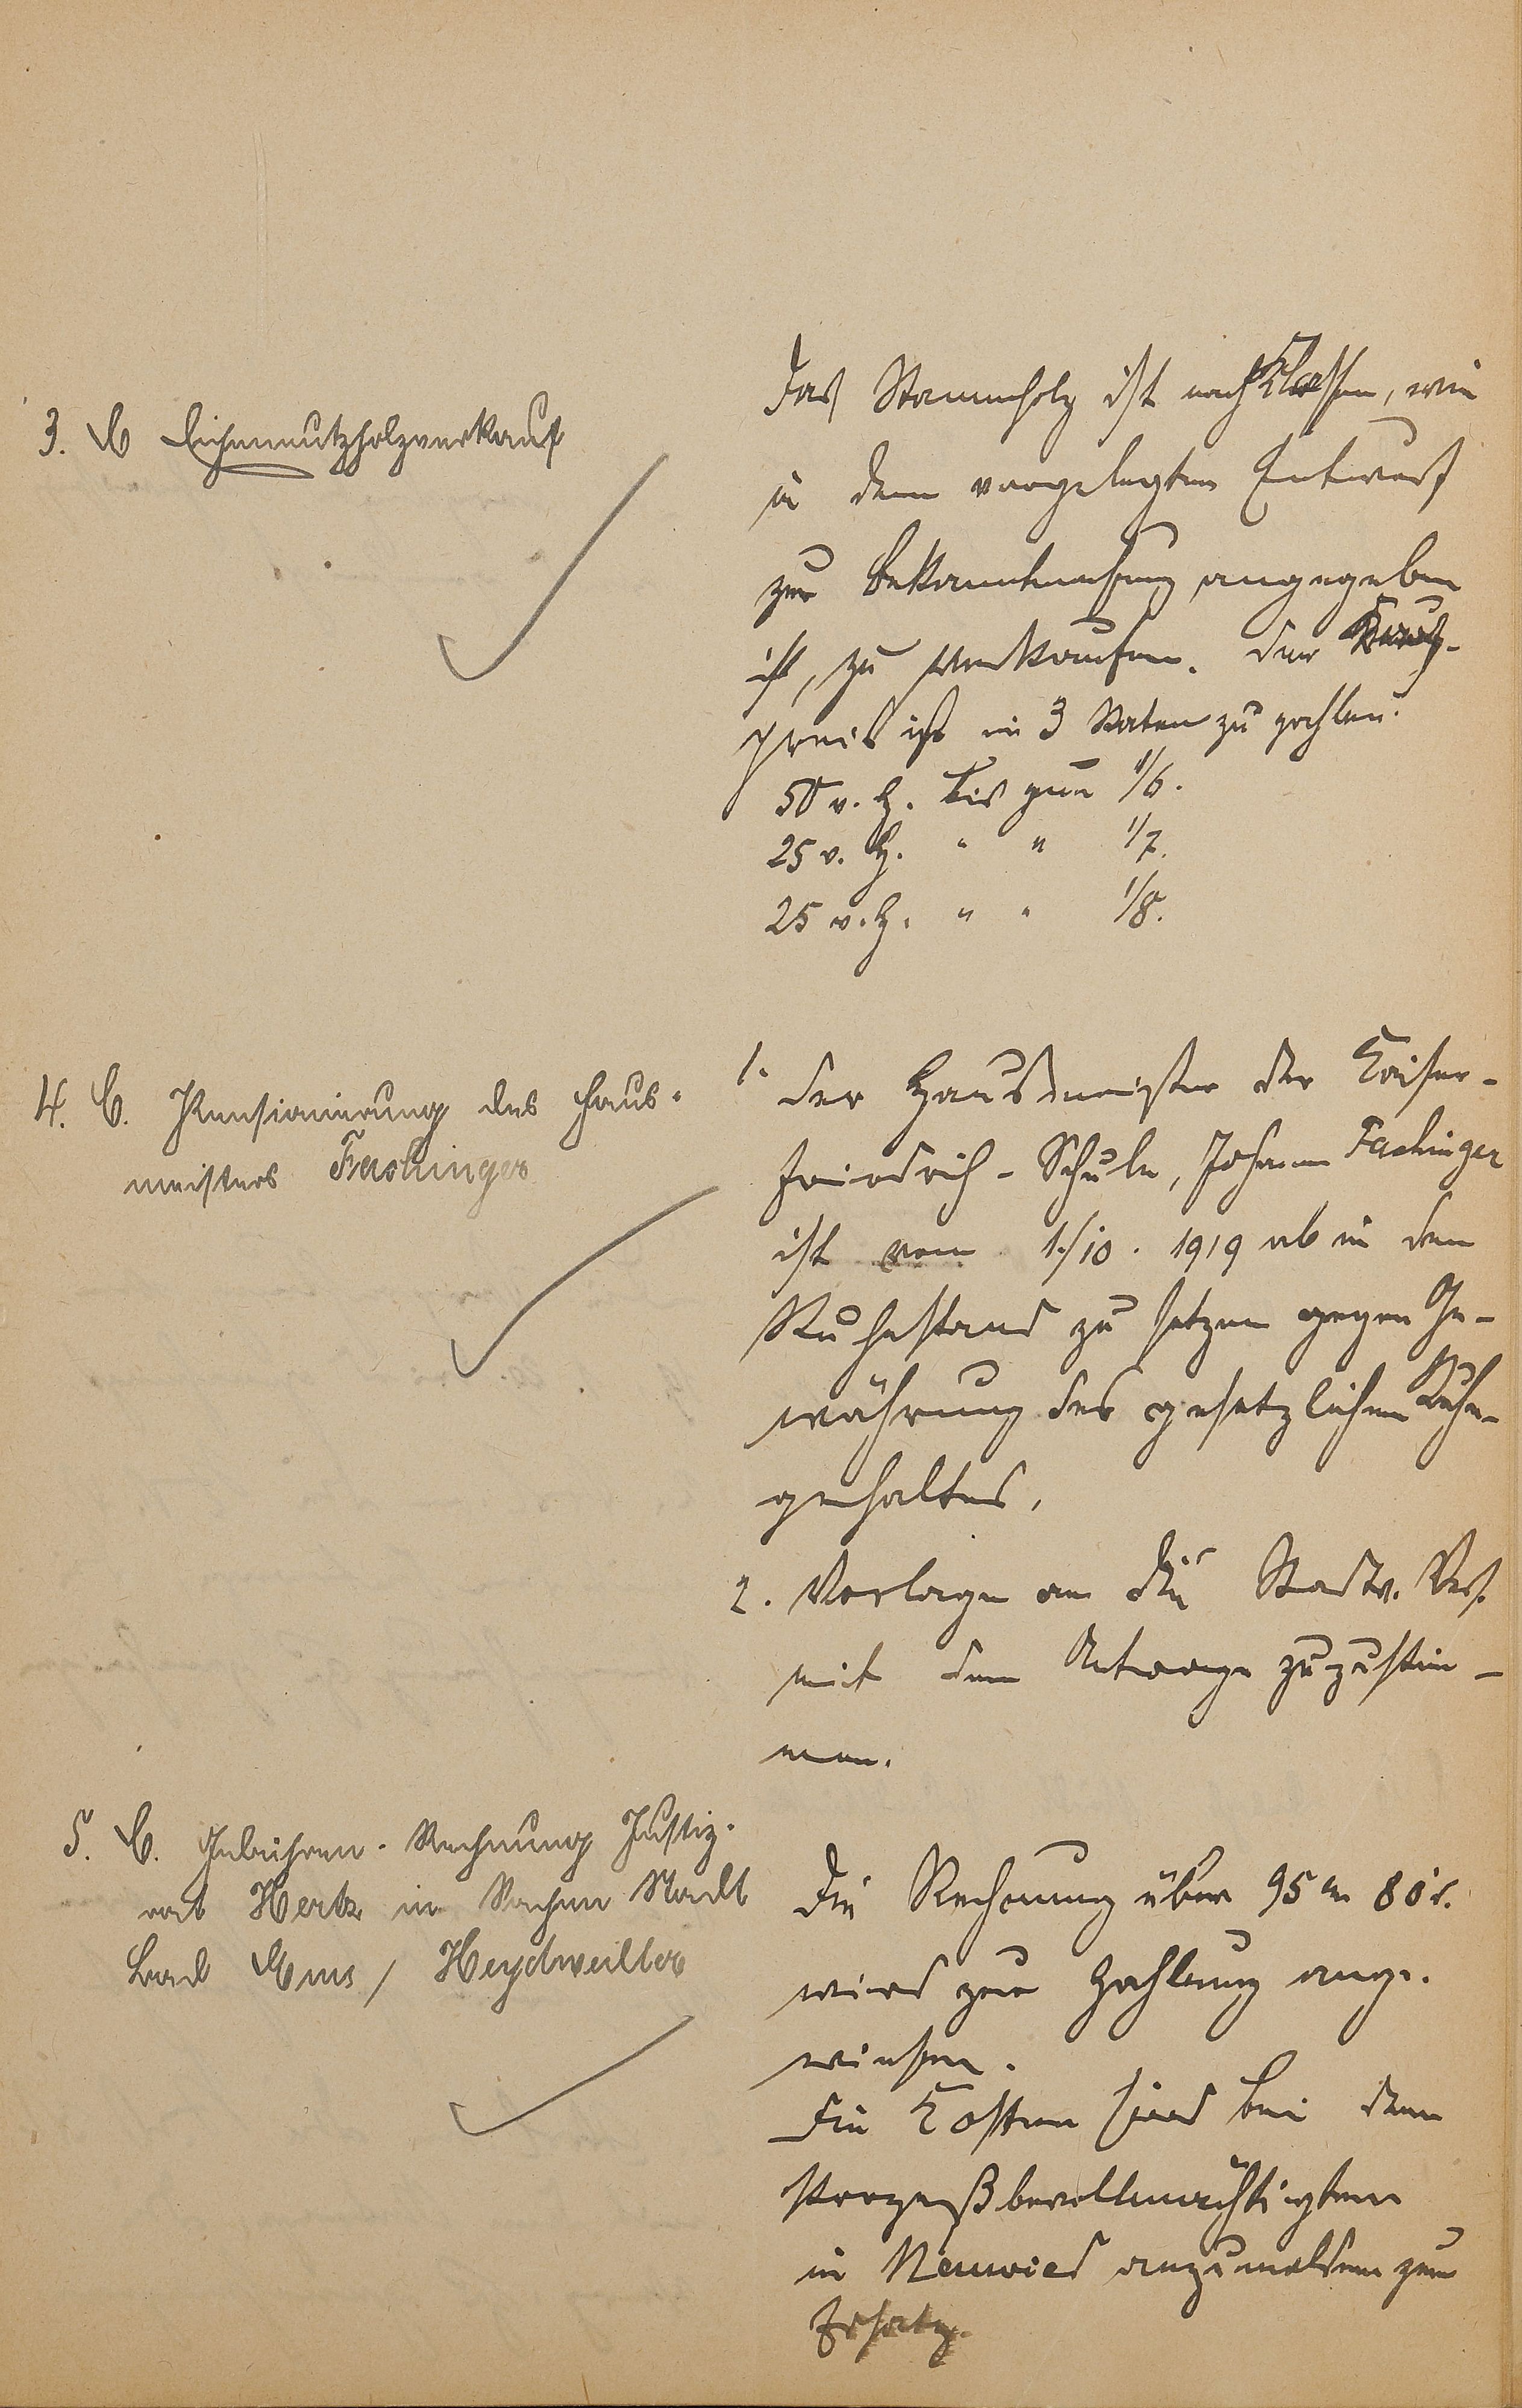 3. C Eichennutzholzverkauf
Das Stammholz ist nach Klassen, wie
in dem vorgelegten Entwurf
zur Bekanntmachung angegeben
ist, zu verkaufen. Der Kauf-
preis ist in 3 Raten zu zahlen.
50 v. H. bis zum 1/6.
25 v. H. " " 1/7.
25 v. H. " " 1/8.
4. C. Pensionierung des Haus-
meisters Fachinger
1. Der Hausmeister der Kaiser-
Friedrich-Schule, Johann Fachinger
ist vom 1./10. 1919 ab in den
Ruhestand zu setzen gegen Ge-
währung des gesetzlichen Ruhe-
gehaltes.
2. Vorlage an die Stadtv. Vers.
mit dem Antrage zuzustim-
men.
5. C. Gebühren-Rechnung Justiz-
rat Hertz in Sachen Stadt
Bad Ems / Heydweiller
Die Rechnung über 95 M 80
wird zur Zahlung ange-
wiesen.
Die Kosten sind bei dem
Prozeßbevollmächtigten
in Neuwied anzumelden zum
Ersatz.